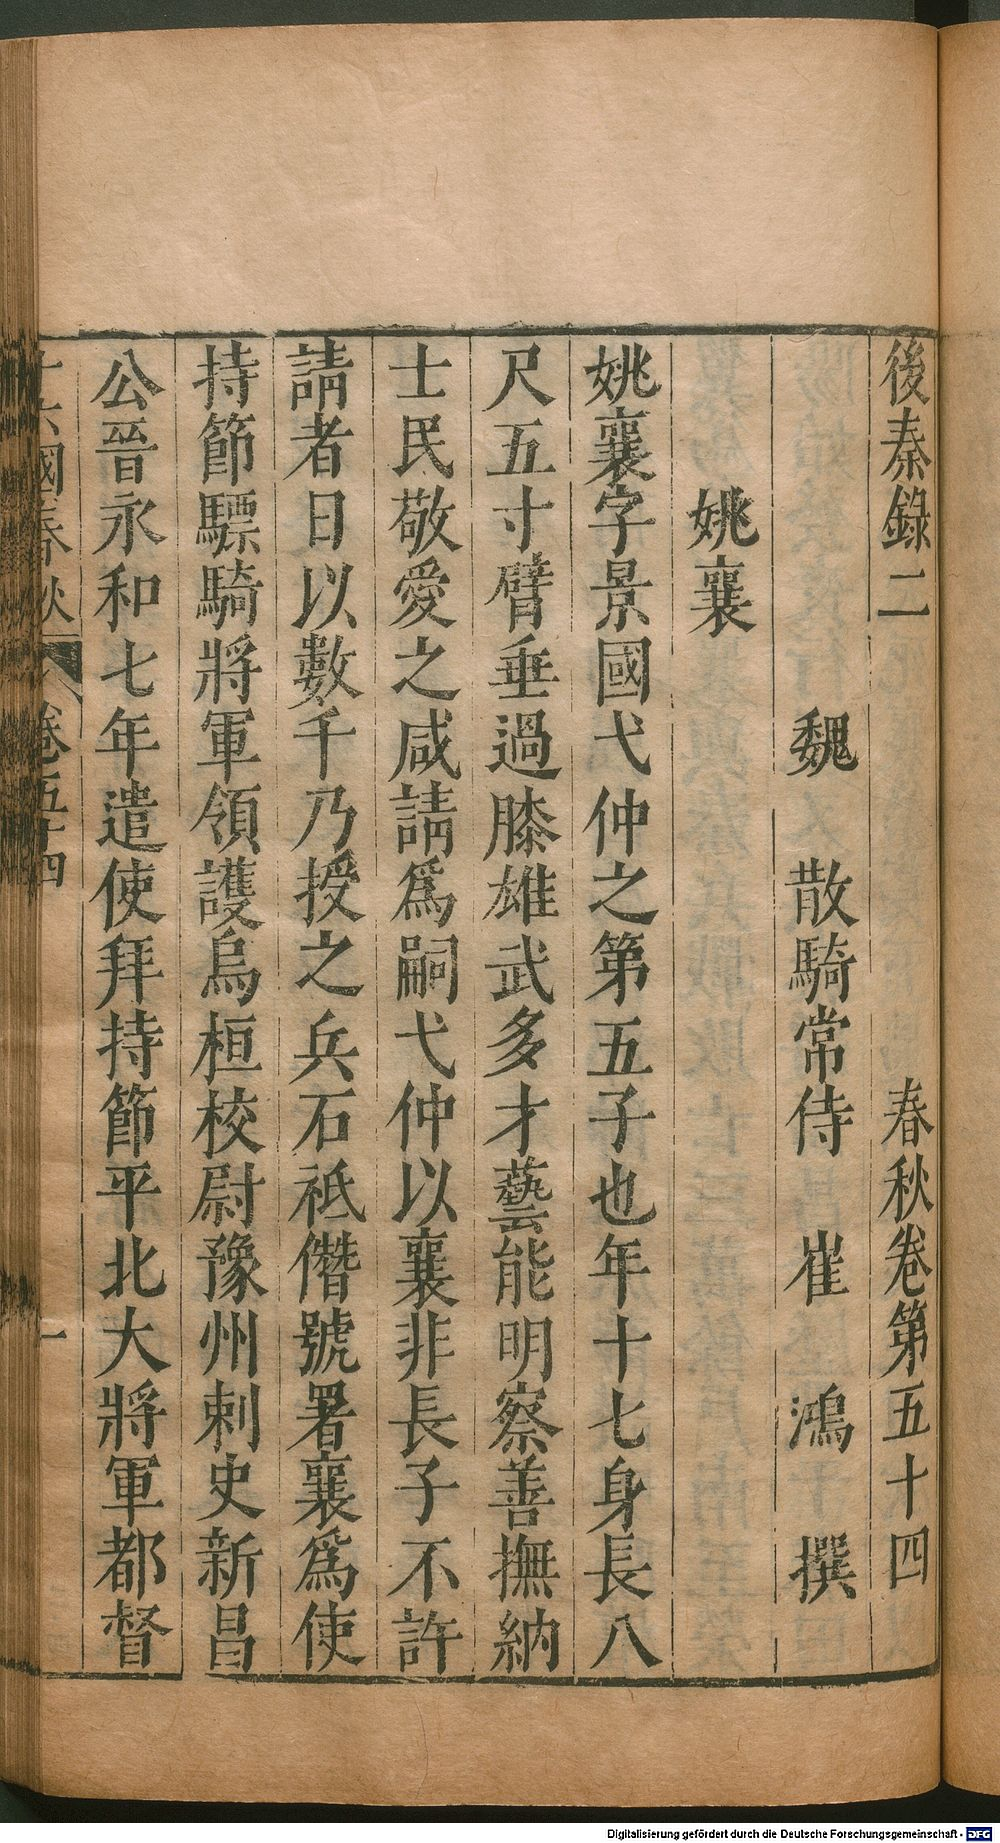 後秦錄二　春秋卷第五十四
魏　散騎常侍　崔　鴻　撰
姚襄
姚襄字景國弋仲之第五子也年十七身長八
尺五寸臂垂過膝雄武多才藝能明察善撫納
士民敬愛之咸請爲嗣弋仲以襄非長子不許
請者日以數千乃授之兵石祗僭號署襄爲使
持節驃騎將軍領護烏桓校尉豫州刺史新昌
公晉永和七年遣使拜持節平北大將軍都督
十六國春秋　卷五十四　一
Digitalisierung gefördert durch die Deutsche Forschungsgemeinschaft - DFG